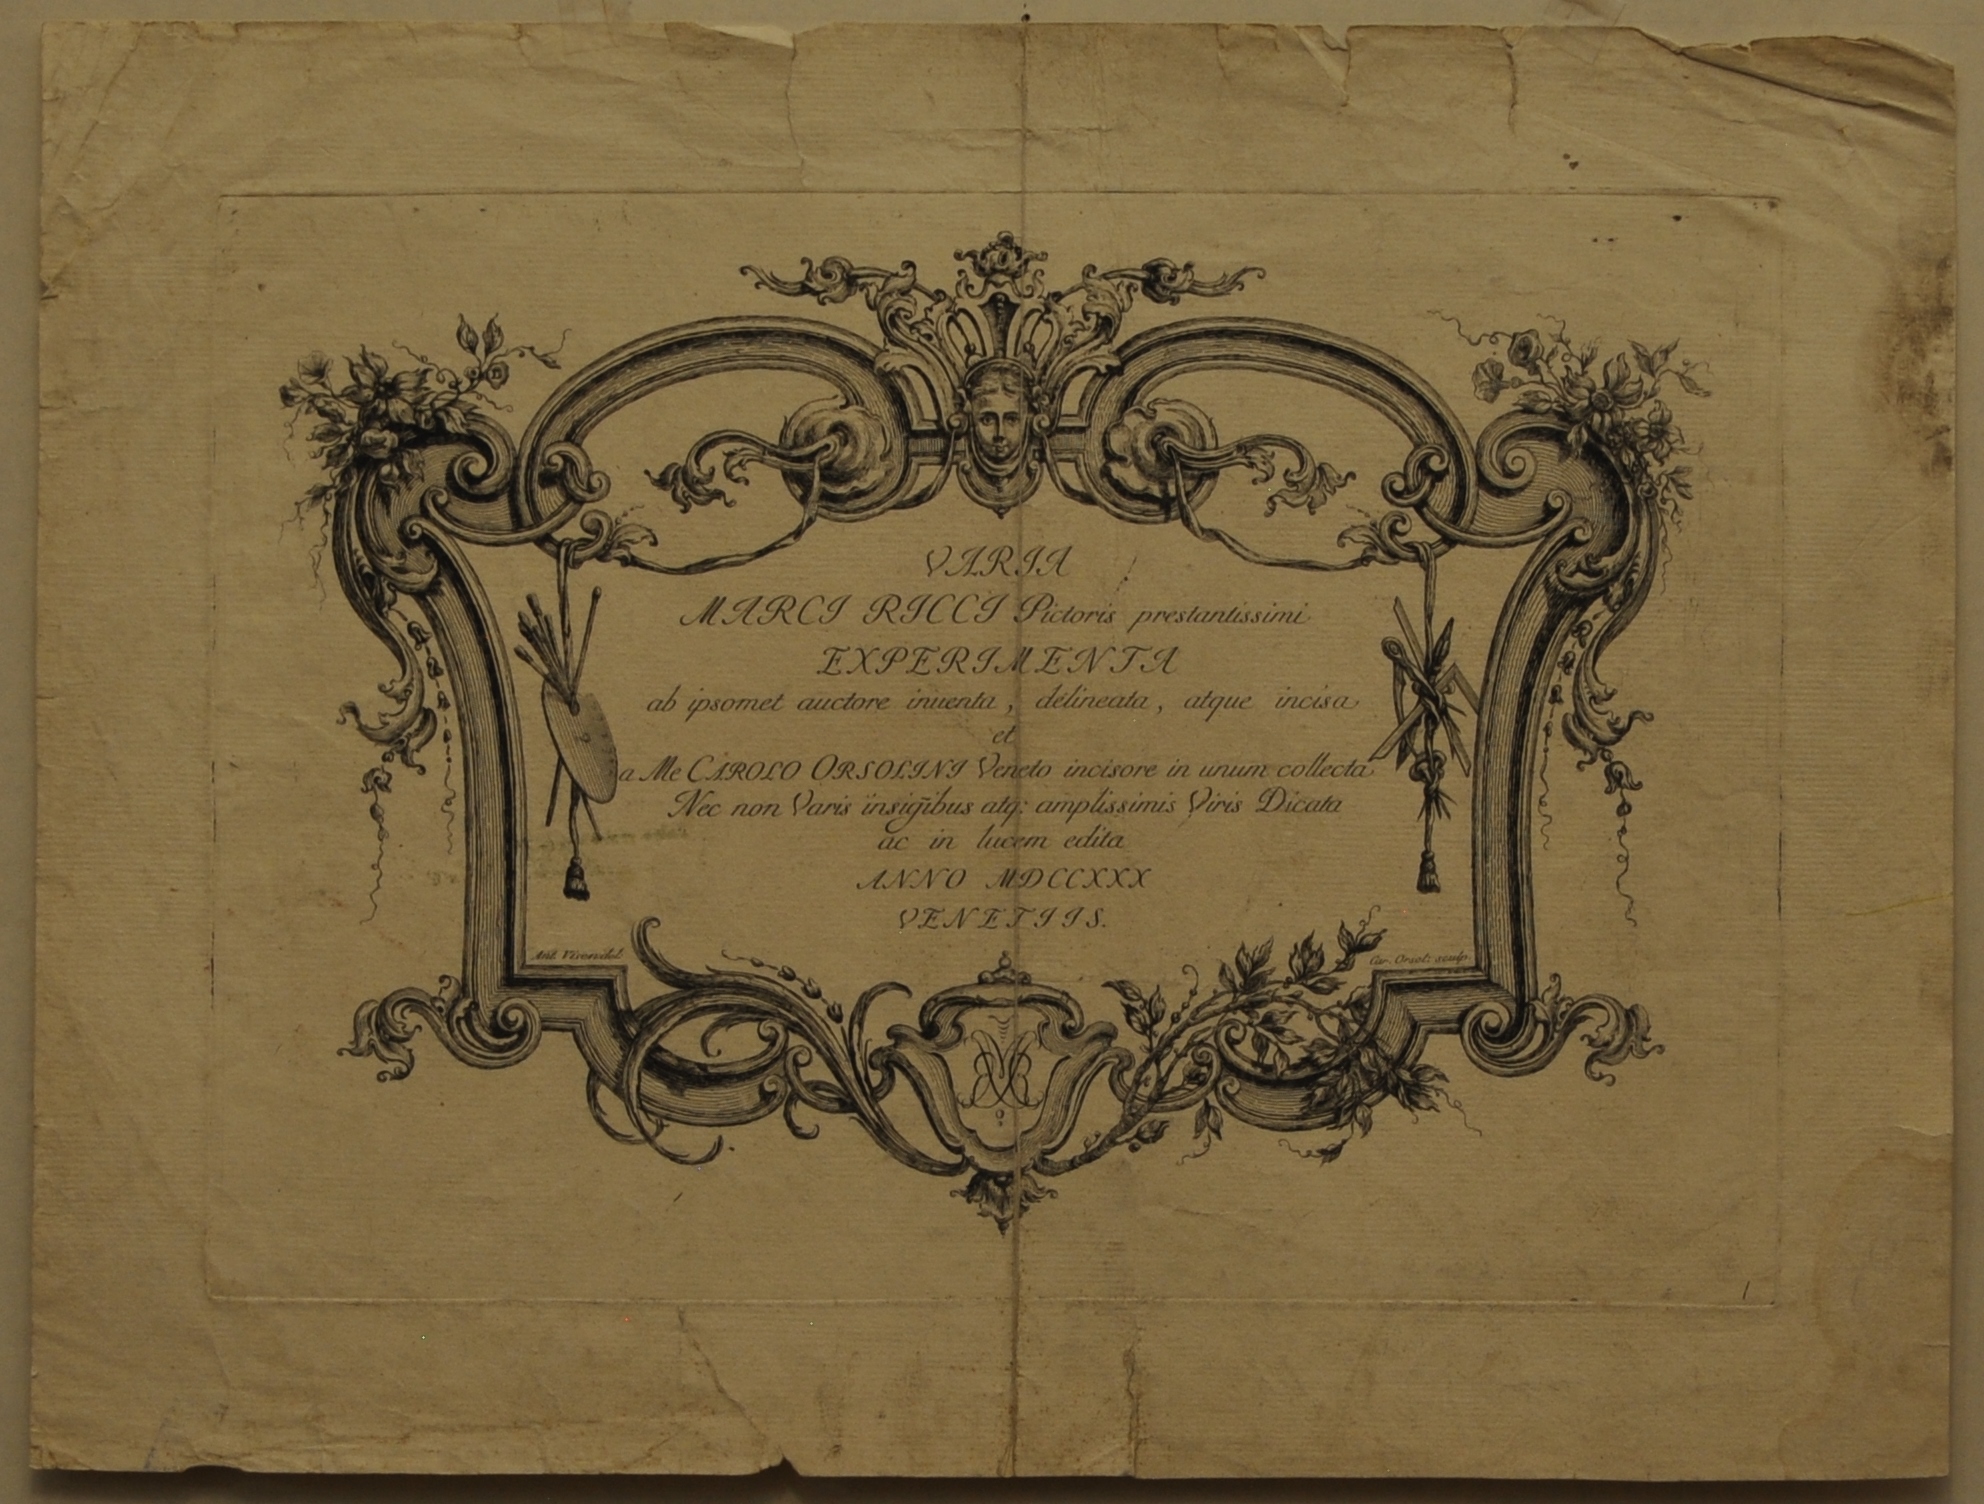 VARIA
MARCI RICCI Pictoris prestantissimi
EXPERIMENTA
ab ipsomet auctore inuenta, delineata, atque incisa
et
a Me CAROLO ORSOLINI Veneto incisore in unum collecta
Nec non Varis insigibus atq: amplissimis Viris Dicata
ac in lucem edita
ANNO MDCCXXX
VENETIIS.
Ant. Visen. del.
Car. Orsol: sculp.
1